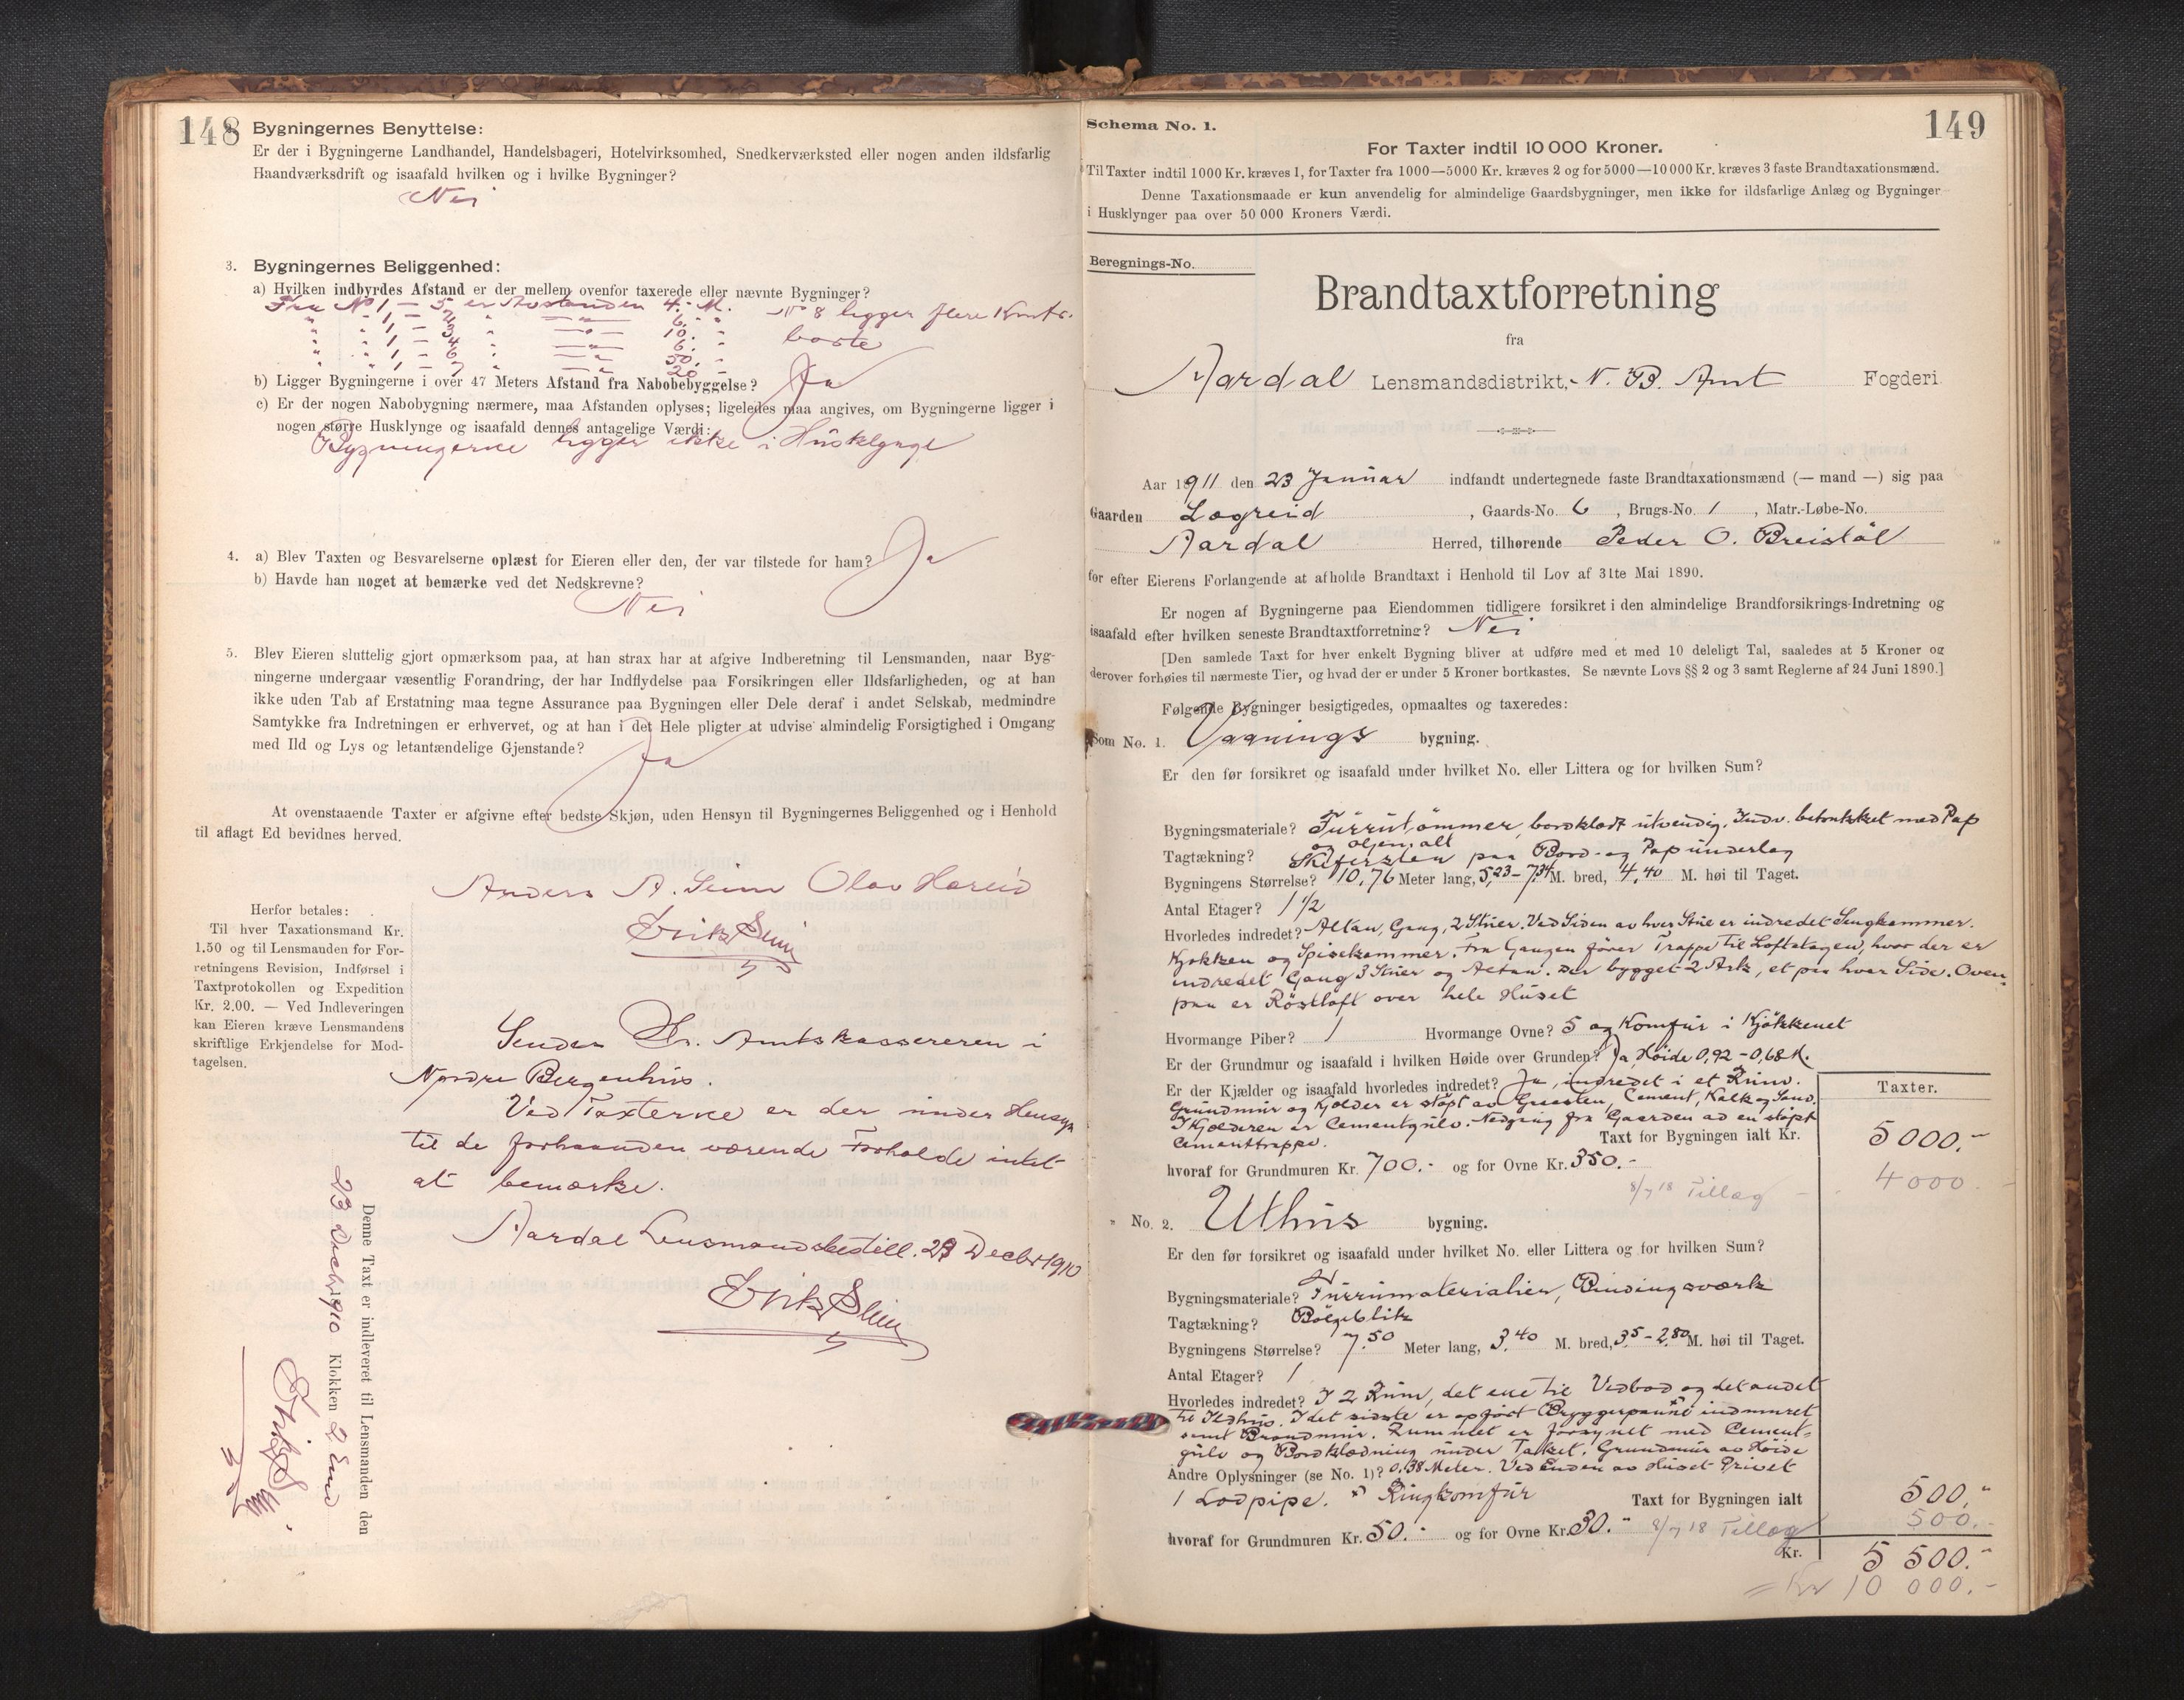 148
Bygningernes Benyttelse:
Er der i Bygningerne Landhandel, Handelsbageri, Hotelvirksomhed, Snedkerværksted eller nogen anden ildsfarlig
Haandværksdrift og isaafald hvilken og i hvilke Bygninger?
Nei
3. Bygningernes Beliggenhed:
a) Hvilken indbyrdes Afstand er der mellem ovenfor taxerede eller nævnte Bygninger?
Fra No 1 – 5 er Avstanden 4.- M. No 8 ligger flere Kmtr.
" " 1, – 2 " —"— 6. " "
" " 1, – 3 " —"— 10. - " borte
" " 1, – 4 " —"— 6. - "
" " 1 – 6 " —"— 50. -
" " 1 – 7 " —"— 20. -
b) Ligger Bygningerne i over 47 Meters Afstand fra Nabobebyggelse? Ja
c) Er der nogen Nabobygning nærmere, maa Afstanden oplyses; ligeledes maa angives, om Bygningerne ligger i
nogen større Husklynge og isaafald dennes antagelige Værdi:
Bygningerne ligger ikke i Husklynge
4. a) Blev Taxten og Besvarelserne oplæst for Eieren eller den, der var tilstede for ham? Ja
b) Havde han noget at bemærke ved det Nedskrevne?
Nei
5. Blev Eieren sluttelig gjort opmærksom paa, at han strax har at afgive Indberetning til Lensmanden, naar Byg-
ningerne undergaar væsentlig Forandring, der har Indflydelse paa Forsikringen eller Ildsfarligheden, og at han
ikke uden Tab af Erstatning maa tegne Assurance paa Bygningen eller Dele deraf i andet Selskab, medmindre
Samtykke fra Indretningen er erhvervet, og at han i det Hele pligter at udvise almindelig Forsigtighed i Omgang
med Ild og Lys og letantændelige Gjenstande?
Ja
At ovenstaaende Taxter er afgivne efter bedste Skjøn, uden Hensyn til Bygningernes Beliggenhed og i Henhold
til aflagt Ed bevidnes herved.
Anders A. Seim Olav Hæreid
Erik Seim
Herfor betales:
Til hver Taxationsmand Kr.
1.50 og til Lensmanden for For-
retningens Revision, Indførsel i
Taxtprotokollen og Expedition
Kr. 2.00. — Ved Indleveringen
kan Eieren kræve Lensmandens
skriftlige Erkjendelse for Mod-
tagelsen.
Sendes Hr. Amtskassereren i
Nordre Bergenhus.
Ved Taxterne er der under Hensyn
til de forhaanden værende Forholde intet
at bemærke.
Aardal Lensmandsbestill. 29 Decbr 1910
Erik Seim
Denne Taxt er indleveret til Lensmanden den
23 Decbr 1910 Klokken 2 Emd
Erik Seim
149
Schema No. 1.
For Taxter indtil 10 000 Kroner.
Til Taxter indtil 1000 Kr. kræves 1, for Taxter fra 1000—5000 Kr. kræves 2 og for 5000—10 000 Kr. kræves 3 faste Brandtaxationsmænd.
Denne Taxationsmaade er kun anvendelig for almindelige Gaardsbygninger, men ikke for ildsfarlige Anlæg og Bygninger
i Husklynger paa over 50 000 Kroners Værdi.
Beregnings-No.
Brandtaxtforretning
fra
Aardal Lensmandsdistrikt, N. B. Amt Fogderi
Aar 1911 den 23 Januar indfandt undertegnede faste Brandtaxationsmænd (— mand —) sig paa
Gaarden Lægreid, Gaards-No. 6, Brugs-No. 1, Matr.-Løbe-No.
Aardal Herred, tilhørende Peder O. Breistøl
for efter Eierens Forlangende at afholde Brandtaxt i Henhold til Lov af 31te Mai 1890.
Er nogen af Bygningerne paa Eiendommen tidligere forsikret i den almindelige Brandforsikrings-Indretning og
isaafald efter hvilken seneste Brandtaxtforretning? Nei
[Den samlede Taxt for hver enkelt Bygning bliver at udføre med et med 10 deleligt Tal, saaledes at 5 Kroner og
derover forhøies til nærmeste Tier, og hvad der er under 5 Kroner bortkastes. Se nævnte Lovs §§ 2 og 3 samt Reglerne af 24 Juni 1890.]
Følgende Bygninger besigtigedes, opmaaltes og taxeredes:
Som No. 1. Vaanings bygning.
Er den før forsikret og isaafald under hvilket No. eller Littera og for hvilken Sum?
Bygningsmateriale? Furrutømmer, bordklædt utvendig. Indv. betrukket med Pap
og oljemalt
Tagtækning? Skifersten paa Bord- og Papunderlag
Bygningens Størrelse? 10,76 Meter lang, 5,23 – 7,34 M. bred, 4,40 M. høi til Taget.
Antal Etager? 1 1/2
Hvorledes indredet? Altan, Gang, 2 Stuer. Ved Siden av hver Stue er indredet Sengkammer.
Kjøkken og Spisekammer. Fra Gangen fører Trappe til Loftetagen, hvor der er
indredet Gang 3 Stuer og Altan. Der bygget 2 Ark, et paa hver Side. Oven-
paa er Röstloft over hele Huset
Hvormange Piber? 1 Hvormange Ovne? 5 og Komfur i Kjøkkenet
Er der Grundmur og isaafald i hvilken Høide over Grunden? Ja, Høide 0,92 – 0,68 M.
Er der Kjælder og isaafald hvorledes indredet? Ja, indredet i et Rum.
Grundmur og Kjælder er støpt av Graasten, Cement, Kalk og Sand.
I Kjælderen er Cementgulv. Nedgang fra Gaarden ad en støpt
Cementtrappe. Taxt for Bygningen ialt Kr.
Taxter.
5000.-
hvoraf for Grundmuren Kr. 700.- og for Ovne Kr. 350.-
8/7 18 Tillæg – 4000.-
" No. 2. Uthus bygning.
Er den før forsikret og isaafald under hvilket No. eller Littera og for hvilken Sum?
Bygningsmateriale? Furrumaterialier, Bindingsværk
Tagtækning? Bølgeblik
Bygningens Størrelse? 7.50 Meter lang, 3.40 M. bred, 3.5 – 2.80 M. høi til Taget.
Antal Etager? 1
Hvorledes indredet? I 2 Rum, det ene til Vedbod og det andet
til Ildhus. I det sidste er opført Bryggerpande indmuret
samt Brandmur. Rummet er forsynet med Cement-
gulv og Bordklædning under Taket. Grundmur av Høide
Andre Oplysninger (se No. 1)? 0,38 Meter. Ved Enden av Huset Privet
1 Lodpipe. x) Ringkomfür Taxt for Bygningen ialt 500,-
hvoraf for Grundmuren Kr. 50.- og for Ovne Kr. 30.- 8/7 18 Tillæg 500.-
Kr. 5 500.-
= Kr 10 000.-